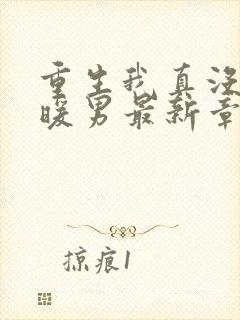 重生我真没
暖男最新章
掠痕1